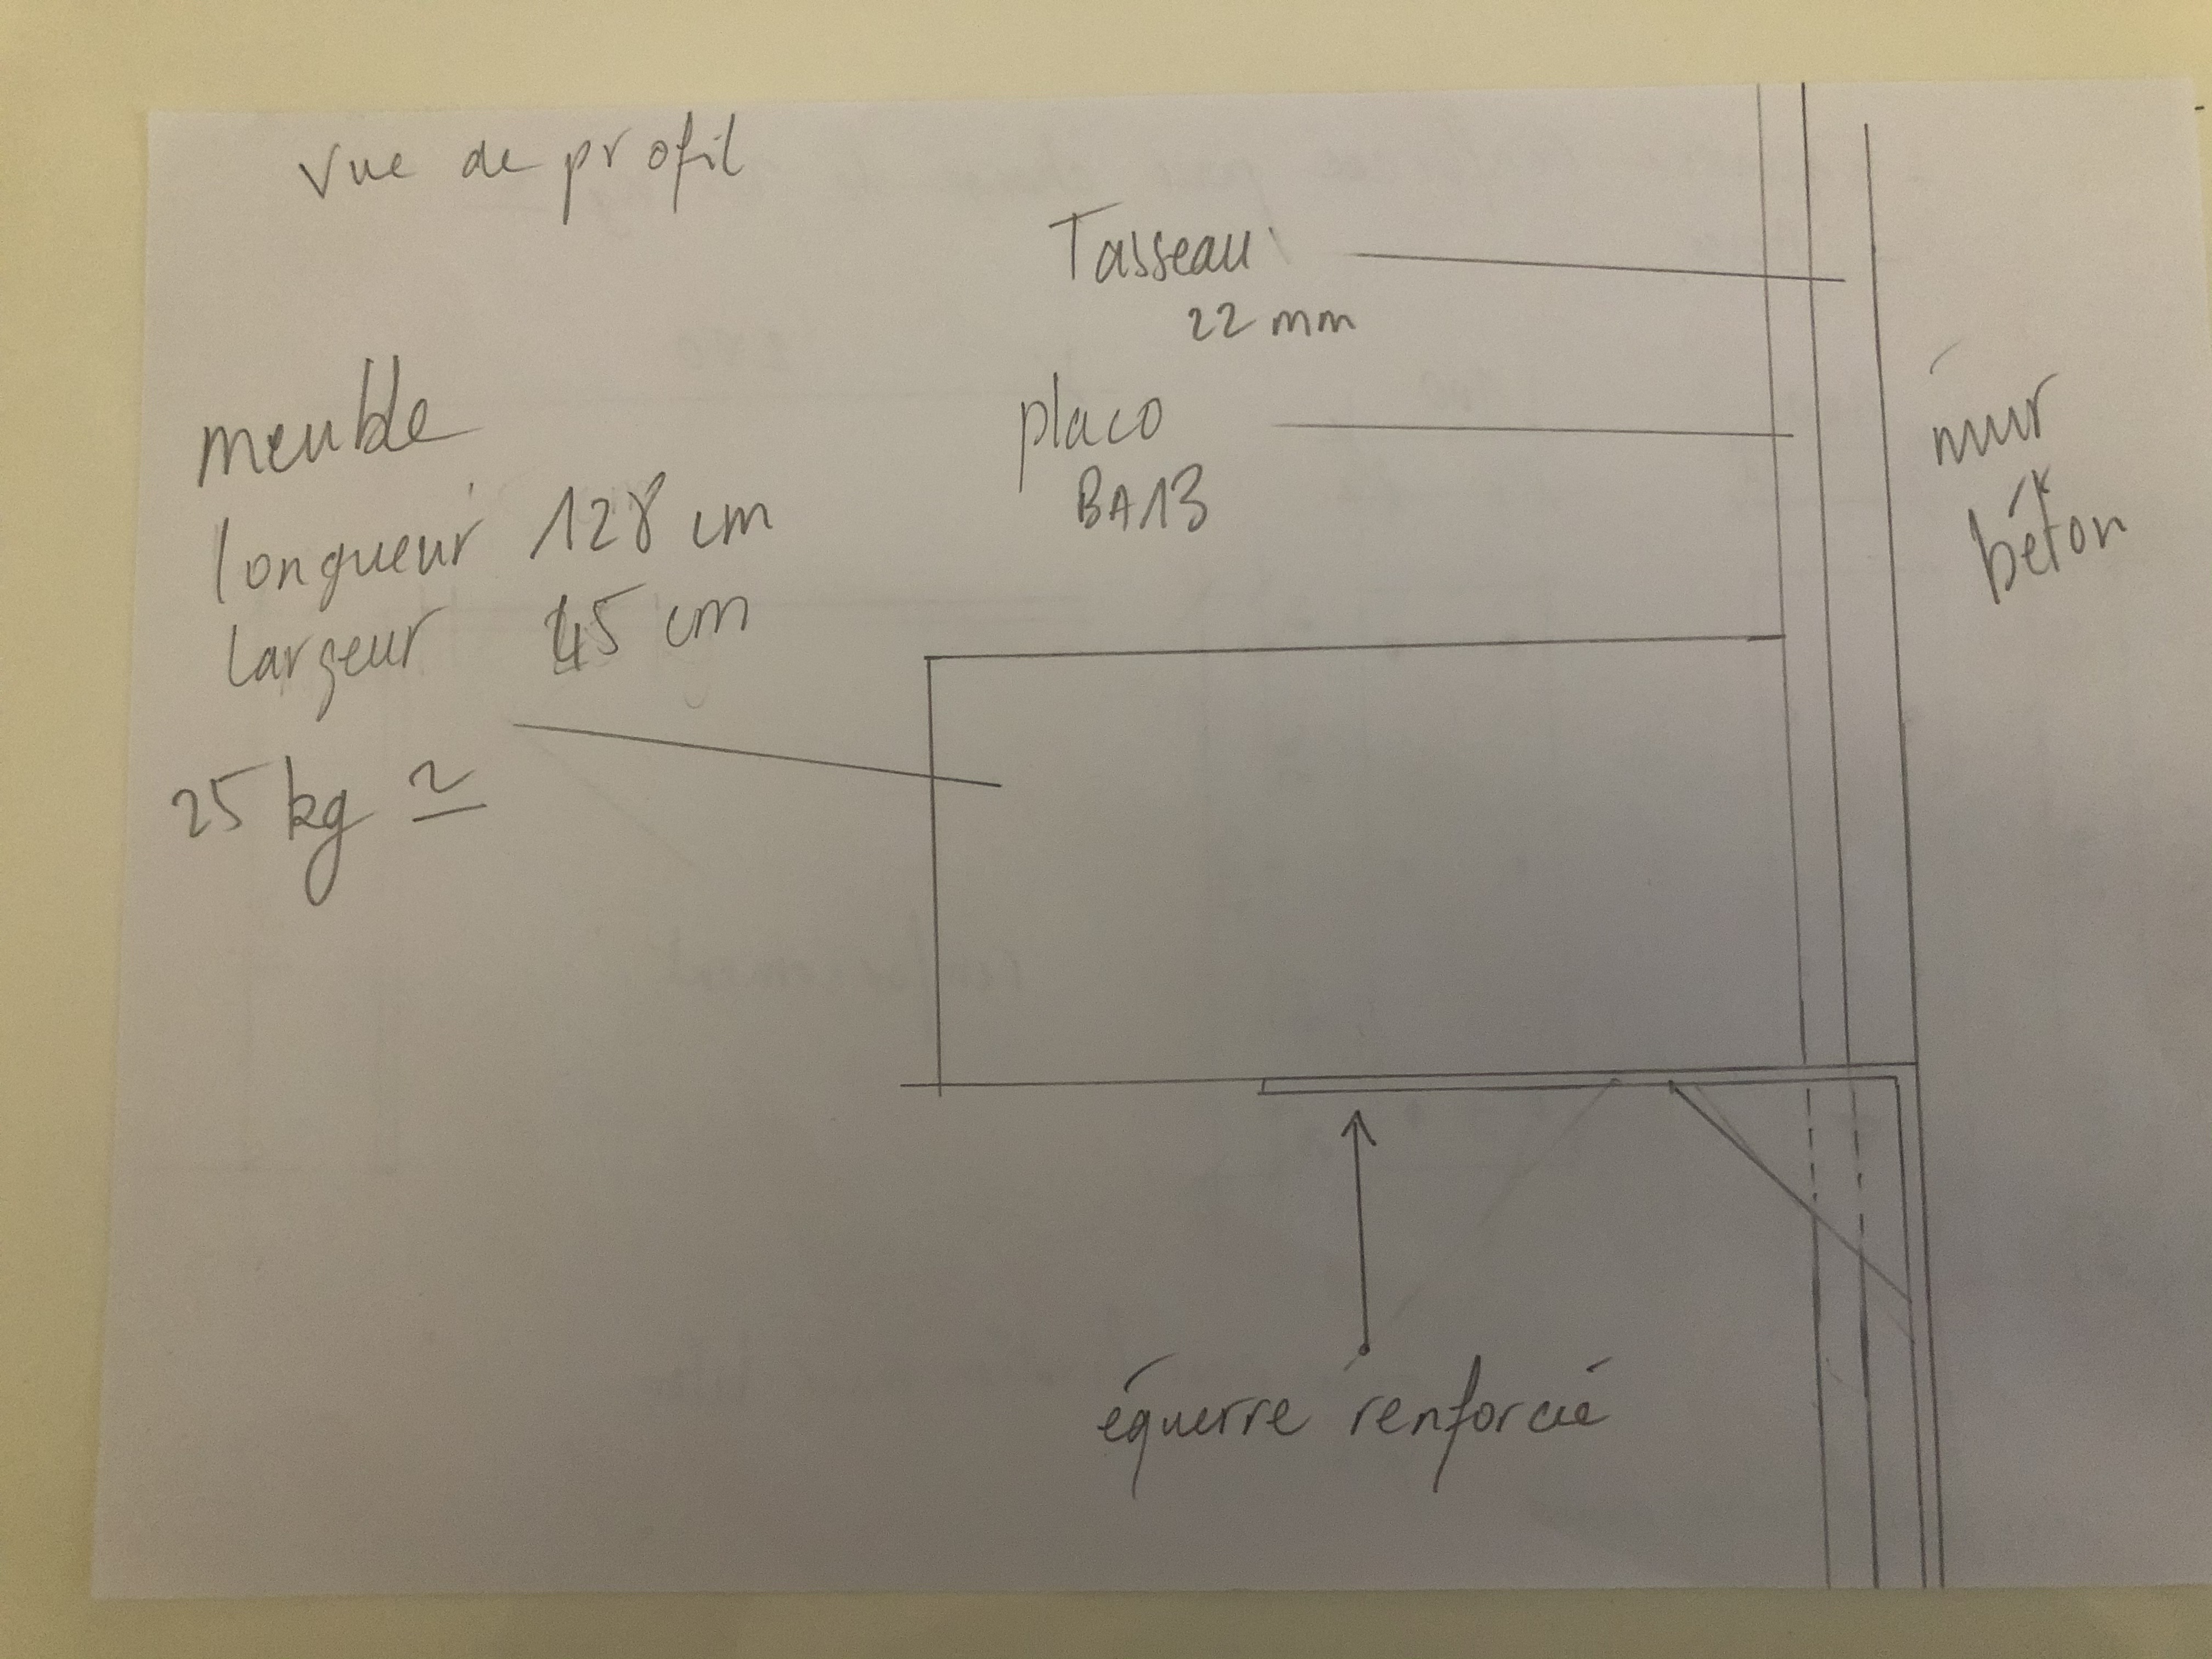 Vue de profil
Tasseau
22 mm
meuble
longueur 128 cm
largeur 45 cm
25 kg ≃
placo
BA13
mur
béton
équerre renforcié